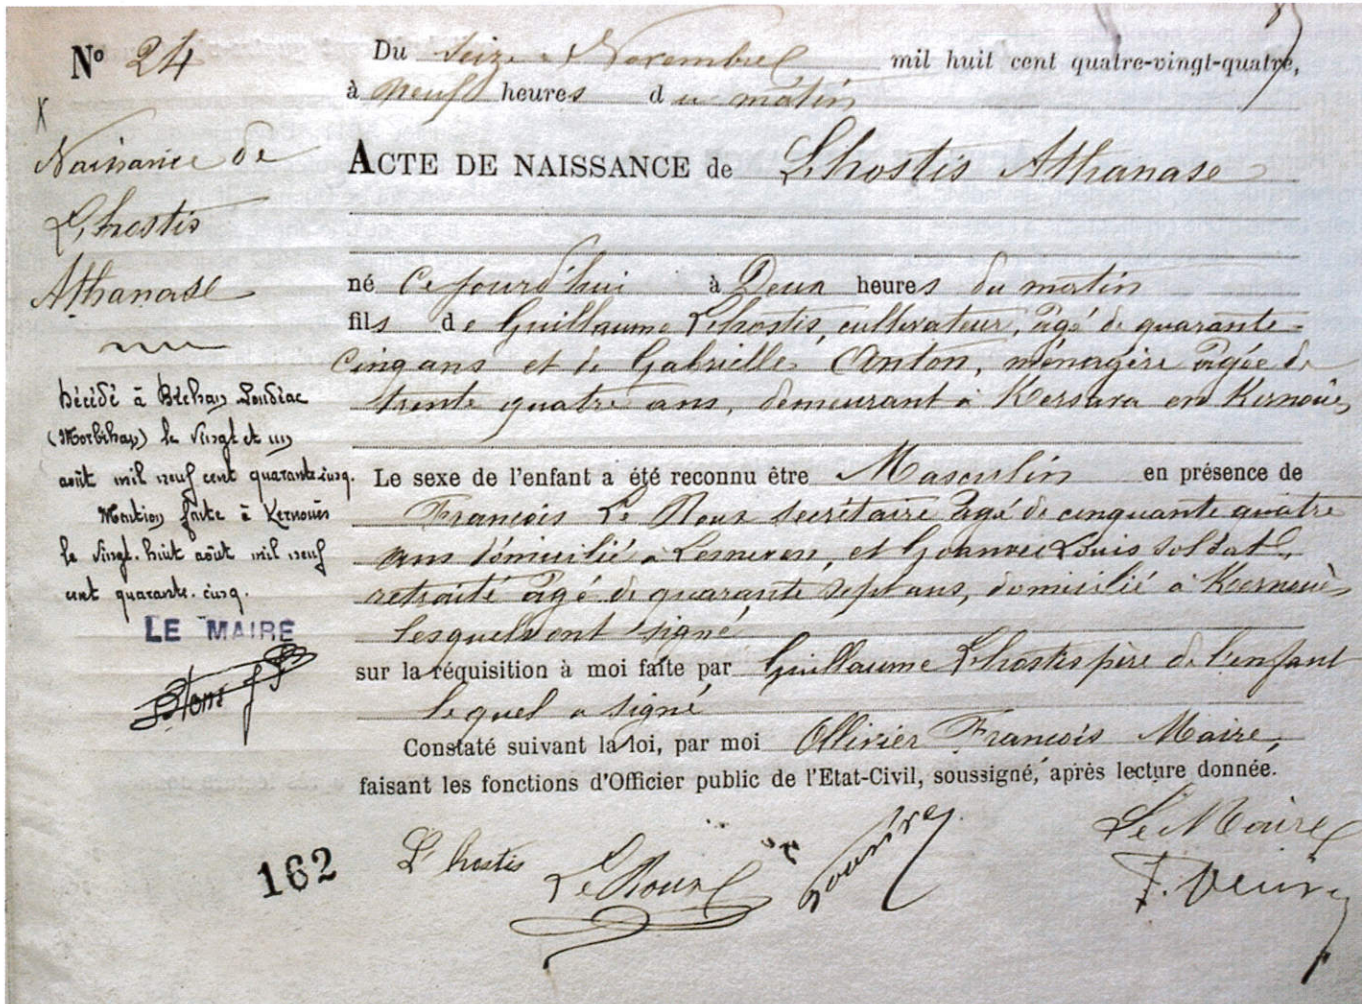 N° 24
Naissance de
Lhostis
Athanase
Décédé à Bréhan-Loudéac
(Morbihan) le vingt et un
août mil neuf cent quarante-cinq.
Mention faite à Kernouës
le vingt-huit août mil neuf
cent quarante-cinq.
LE MAIRE
Du seize Novembre mil huit cent quatre-vingt-quatre,
à neuf heures du matin
ACTE DE NAISSANCE de Lhostis Athanase
né Ce jourd'hui à Deux heures du matin
fils de Guillaume Lhostis, cultivateur, âgé de quarante-
cinq ans et de Gabrielle Anton, ménagère âgée de
trente quatre ans, demeurant à Kersara en Kernouës
Le sexe de l'enfant a été reconnu être Masculin en présence de
François Le Roux secrétaire âgé de cinquante quatre
ans domicilié à Lesneven, et Louis soldat
retraité âgé de quarante sept ans, domicilié à Kernouës
lesquels ont signé
sur la réquisition à moi faite par Guillaume Lhostis père de l'enfant
lequel a signé
Constaté suivant la loi, par moi Ollivier François Maire,
faisant les fonctions d'Officier public de l'Etat-Civil, soussigné, après lecture donnée.
162
L'hostis
Le Roux
Le Maire